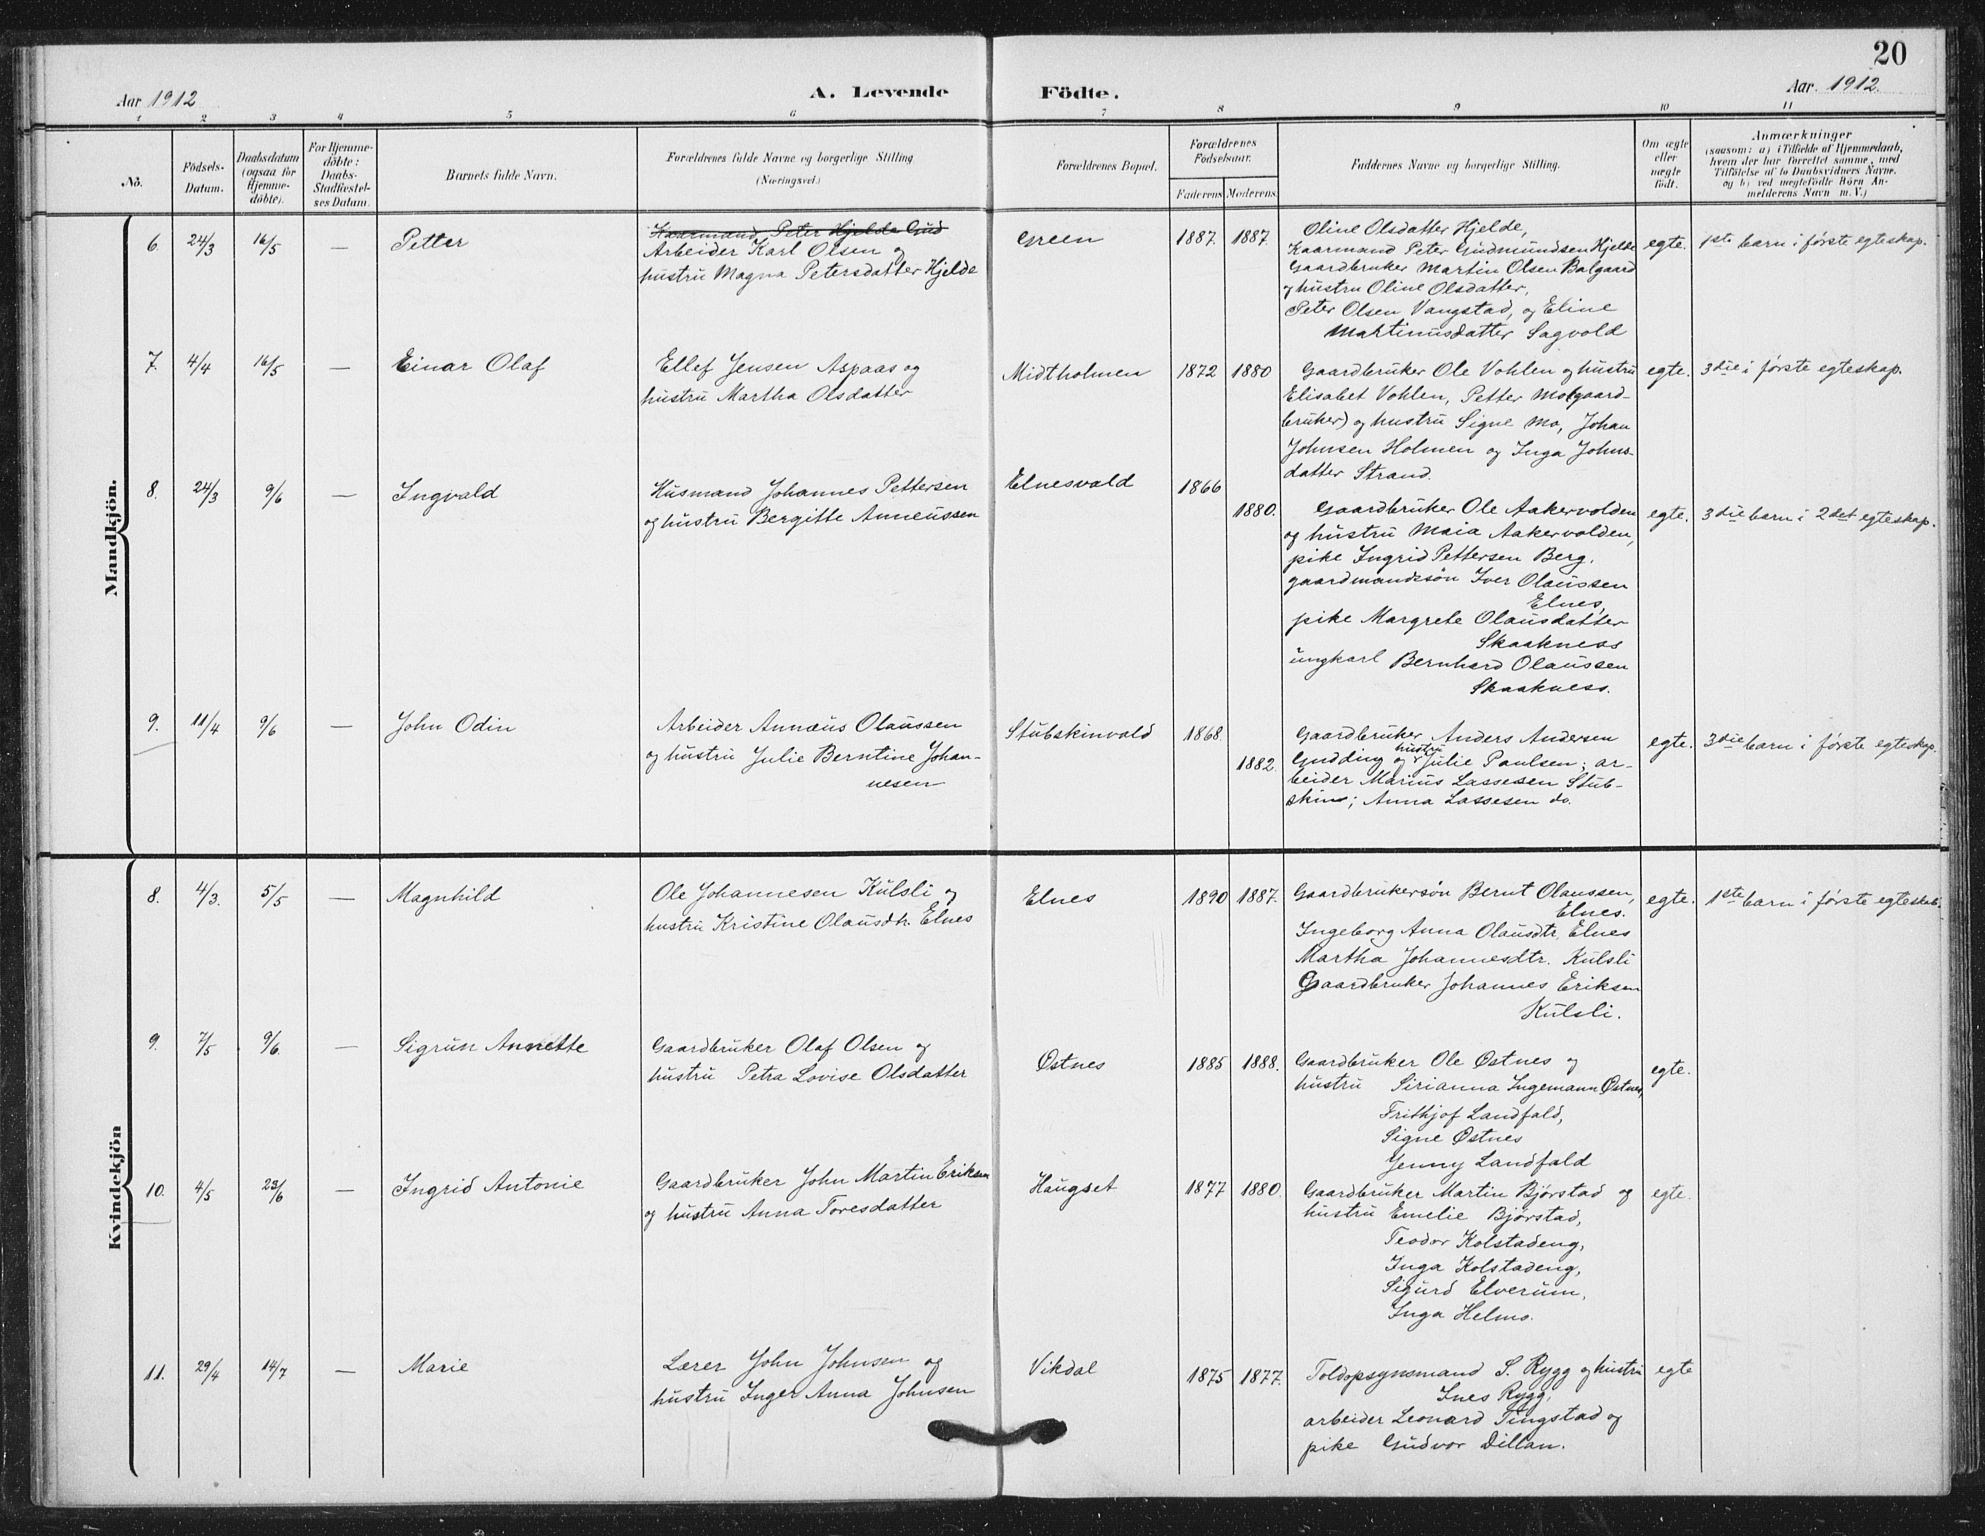 20
Aar 1912
A. Levende
Födte.
Aar 1912.
1 2 3 4 5 6 7 8 9 10 11
No.
Födsels-
Datum.
Daabsdatum
(ogsaa for
Hjemme-
döbte).
For Hjemme-
döbte:
Daabs-
Stadfæstel-
ses Datum.
Barnets fulde Navn.
Forældrenes fulde Navne og borgerlige Stilling
(Næringsvei.)
Forældrenes Bopæl.
Forældrenes
Födselsaar.
Faderens. Moderens.
Faddernes Navne og borgerlige Stilling.
Om ægte
eller
uægte
födt.
Anmærkninger
(saasom: a) i Tilfælde af Hjemmedaab,
hvem der har forrettet samme, med
Tilföielse af to Daabsvidners Navne.
og b) ved uægtefödte Börn An-
melderens Navn m. V.)
Mandkjön.
6. 24/3 16/5 — Petter
Kaarmand Peter Hjelde Gud
Arbeider Karl Olsen og
hustru Magna Petersdatter Hjelde
Green 1887. 1887.
Oline Olsdatter Hjelde,
Kaarmand Peter Gudmundsen Hjelde
Gaardbruker Martin Olsen Balgaard
og hustru Oline Olsdatter,
Peter Olsen Vangstad, og Eline
Martinusdatter Sagvold
egte. 1ste barn i første egteskap.
7. 4/4 16/5 — Einar Olaf
Ellef Jensen Aspaas og
hustru Martha Olsdatter
Midtholmen 1872 1880
Gaardbruker Ole Vohlen og hustru
Elisabet Vohlen, Petter Mo(gaard-
bruker) og hustru Signe Mo, Johan
Johnsen Holmen og Inga Johns-
datter Strand.
egte. 3die i første egteskap.
8. 24/3 9/6 — Ingvald
Husmand Johannes Pettersen
og hustru Bergitte Anneussen
Elnesvald 1866
1880.
Gaardbruker Ole Aakervolden
og hustru Maia Aakervolden,
pike Ingrid Pettersen Berg.
gaardmandssøn Iver Olaussen
Elnes,
pike Margrete Olausdatter
Skaakness
ungkarl Bernhard Olaussen
Skaakness.
egte. 3die barn i 2det egteskap.
9. 11/4 9/6 — John Odin
Arbeider Annæus Olaussen
og hustru Julie Berntine Johan-
nesen
Stubskinvald 1868.
1882.
Gaardbruker Anders Andersen
Gudding og hustru Julie Paulsen; ar-
beider Marius Lassesen Stub-
skin; Anna Lassesen do.
egte. 3die barn i første egteskap.
Kvindekjön
8. 4/3. 5/5 — Magnhild
Ole Johannesen Kulsli og
hustru Kristine Olausdtr. Elnes
Elnes 1890 1887.
Gaardbrukersøn Bernt Olaussen,
Elnes.
Ingeborg Anna Olausdtr. Elnes
Martha Johannesdtr. Kulsli
Gaardbruker Johannes Eriksen
Kulsli.
egte. 1ste barn i første egteskab.
9. 7/5 9/6. — Sigrun Annette
Gaardbruker Olaf Olsen og
hustru Petra Lovise Olsdatter
Østnes 1885 1888.
Gaardbruker Ole Østnes og
hustru Sirianna Ingemann Østnes,
Frithjof Landfald,
Signe Østnes
Jenny Landfald
egte.
10. 4/5 23/6 — Ingrid Antonie
Gaardbruker John Martin Eriksen
og hustru Anna Toresdatter
Haugset 1877 1880.
Gaardbruker Martin Bjørstad og
hustru Emelie Bjørstad,
Teodor Kolstadeng,
Inga Kolstadeng,
Sigurd Elverum,
Inga Helmo.
egte.
11. 29/4 14/7 — Marie
Lærer John Johnsen og
hustru Inger Anna Johnsen
Vikdal 1875 1877.
Toldopsynsmand S. Rygg og hustru
Ines Rygg,
arbeider Leonard Tingstad og
pike Gudvor Dillan.
egte